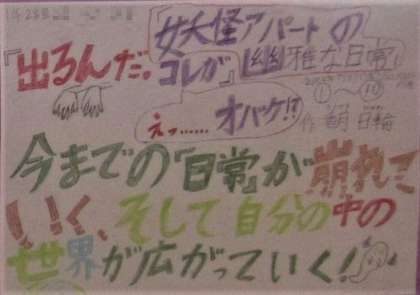 『妖怪アパートの
幽雅な日常』
①〜⑩
作 香月 日輪
『出るんだ。
コレが』
えっ……オバケ!?
今までの『日常』が崩れて
いく、そして自分の中の
世界が広がっていく!